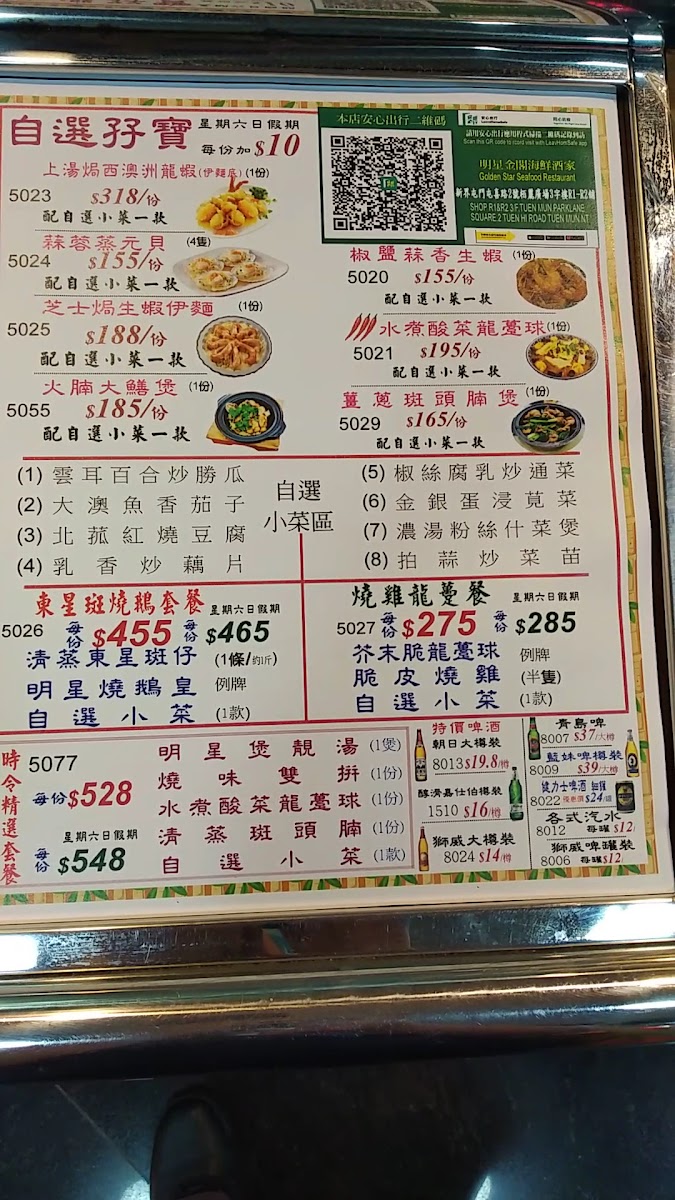 自選孖寶
星期六日假期
每份加$10
本店安心出行二維碼
請用安心出行應用程式掃描二維碼記錄到訪
Scan the QR code to record visit with LeaveHomeSafe app
明星金閣海鮮酒家
Golden Star Seafood Restaurant
新界屯門屯喜路2號栢麗廣場3字樓R1-R2舖
SHOP R1&R2 3/F TUEN MUN PARKLANE
SQUARE 2 TUEN HI ROAD TUEN MUN NT
上湯焗西澳洲龍蝦(伊麵底)(1份)
5023 $318/份
配自選小菜一款
蒜蓉蒸元貝 (4隻)
5024 $155/份
配自選小菜一款
芝士焗生蝦伊麵 (1份)
5025 $188/份
配自選小菜一款
火腩大鱔煲 (1份)
5055 $185/份
配自選小菜一款
椒鹽蒜香生蝦 (1份)
5020 $155/份
配自選小菜一款
水煮酸菜龍躉球(1份)
5021 $195/份
配自選小菜一款
薑蔥斑頭腩煲 (1份)
5029 $165/份
配自選小菜一款
(1) 雲耳百合炒勝瓜
(2) 大澳魚香茄子
(3) 北菰紅燒豆腐
(4) 乳香炒藕片
自選
小菜區
(5) 椒絲腐乳炒通菜
(6) 金銀蛋浸莧菜
(7) 濃湯粉絲什菜煲
(8) 拍蒜炒菜苗
東星斑燒鵝套餐 星期六日假期
5026 每份$455 每份$465
清蒸東星斑仔 (1條/約1斤)
明星燒鵝皇 例牌
自選小菜 (1款)
燒雞龍躉餐 星期六日假期
5027 每份$275 每份$285
芥末脆龍躉球 例牌
脆皮燒雞 (半隻)
自選小菜 (1款)
時令精選套餐
5077
每份$528
星期六日假期
每份$548
明星煲靚湯 (1煲)
燒味雙拼 (1份)
水煮酸菜龍躉球 (1份)
清蒸斑頭腩 (1份)
自選小菜 (1款)
特價啤酒
朝日大樽裝
8013 $19.8/樽
醇清嘉仕伯樽裝
1510 $16/樽
獅威大樽裝
8024 $14/樽
青島啤
8007 $37/大樽
藍妹啤樽裝
8009 $39/大樽
健力士啤酒 細罐
8022 優惠價$24/罐
各式汽水
8012 每罐$12
獅威啤罐裝
8006 每罐$12